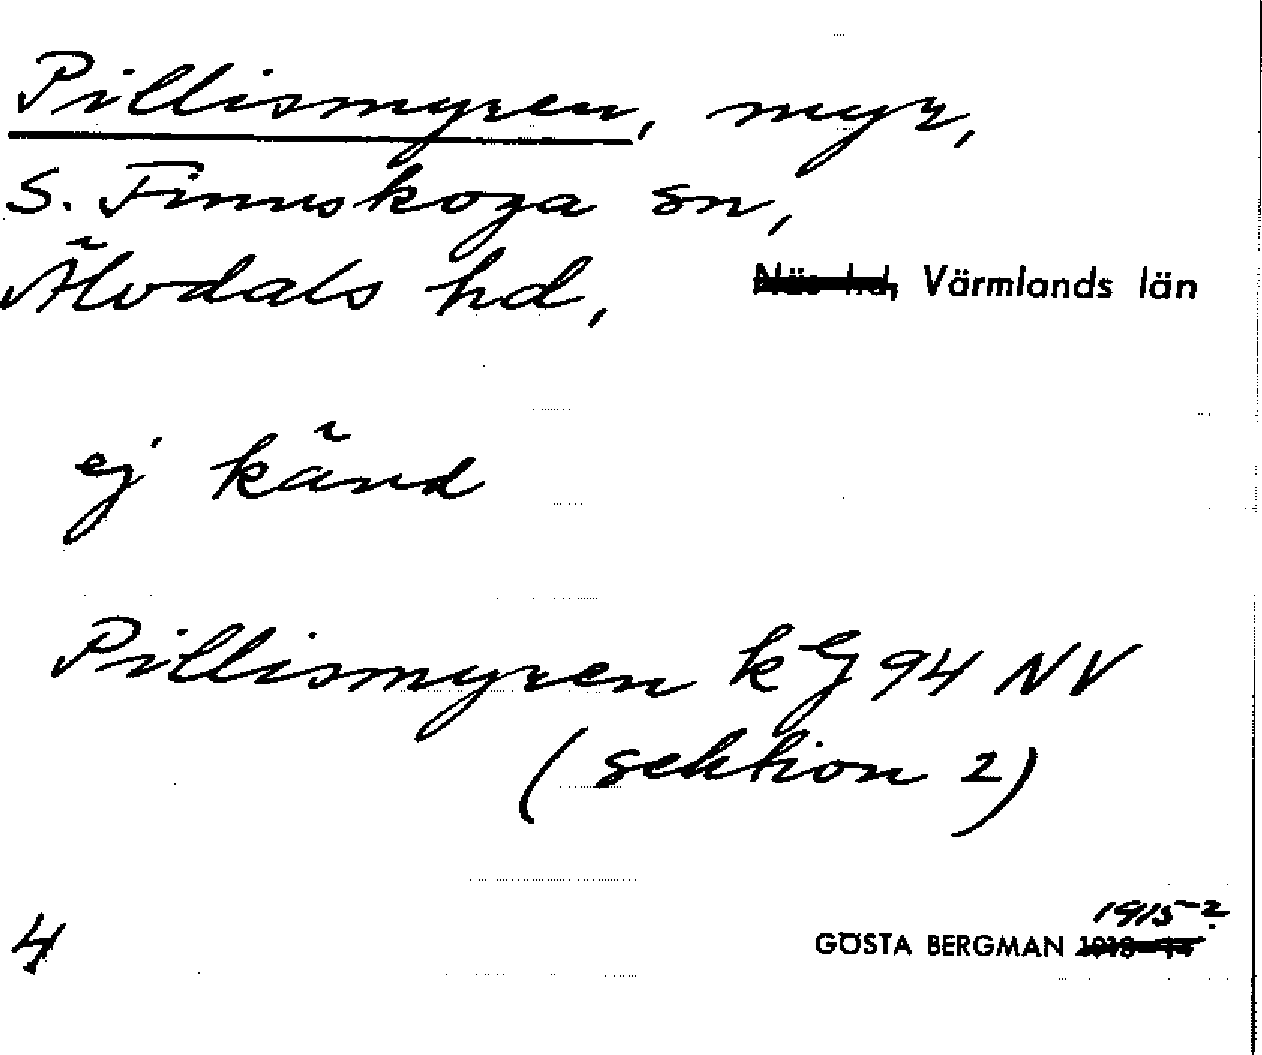 Pillismyren, myr,
S. Finnskoga sn,
Älvdals hd, Näs hd, Värmlands län
ej känd
Pillismyren kG 94 NV
(sektion 2)
1915?
4 GÖSTA BERGMAN